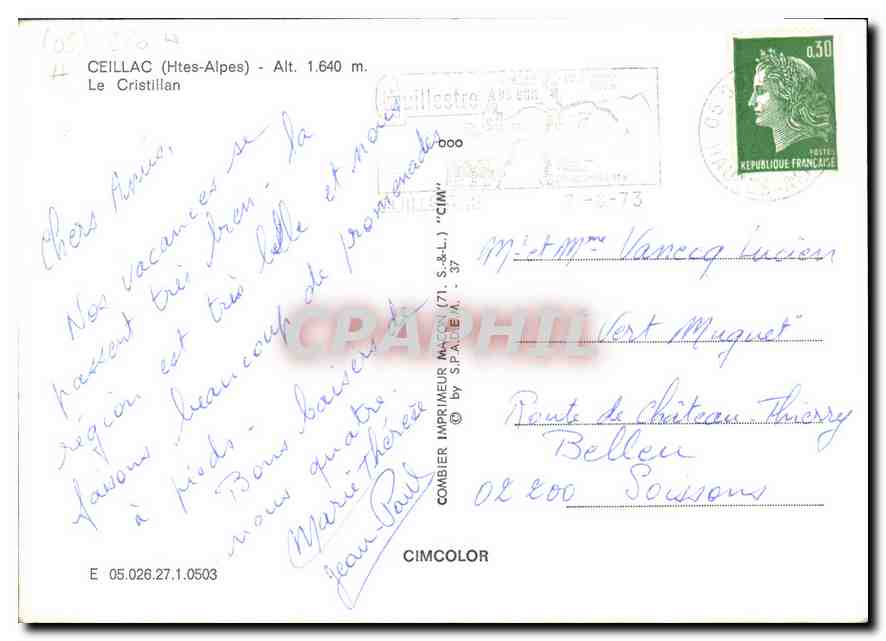 CEILLAC (Htes-Alpes) - Alt. 1.640 m.
Le Cristillan
Chers Amis,
Nos vacances se
passent très bien. la
région est très belle et nous
faisons beaucoup de promenades
à pieds.
Bons baisers de
nous quatre.
Marie Thérèse
Jean-Paul
E 05.026.27.1.0503
COMBIER IMPRIMEUR MACON (71. S.-&-L.) "CIM"
© by S.P.A.D.E.M. - 37
CIMCOLOR
0,30
POSTES
REPUBLIQUE FRANÇAISE
-8-73
Mr et Mme Vanecq Lucien
"Vert Muguet"
Route de Château-Thierry
Belleu
02200 Soissons
CPAPHIL